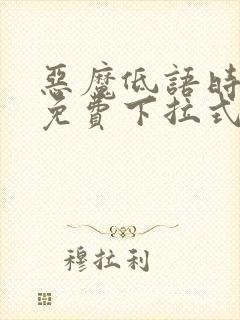 惡魔低語時
免費下拉式
穆拉利